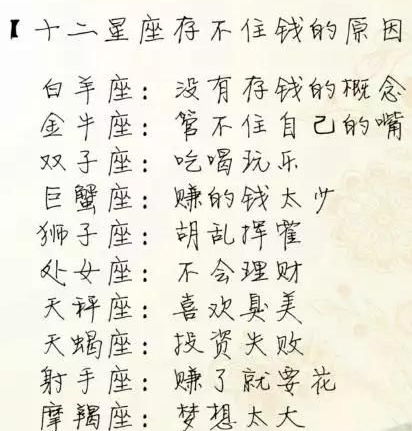 【十二星座存不住钱的原因
白羊座：没有存钱的概念
金牛座：管不住自己的嘴
双子座：吃喝玩乐
巨蟹座：赚的钱太少
狮子座：胡乱挥霍
处女座：不会理财
天秤座：喜欢臭美
天蝎座：投资失败
射手座：赚了就要花
摩羯座：梦想太大